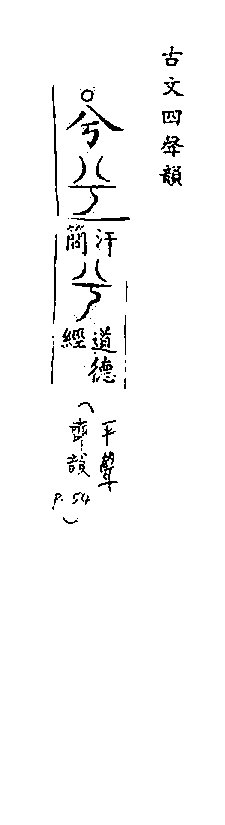 古文四聲韻
兮
汗
簡
道德
經
(平聲
齊韻
P. 54)